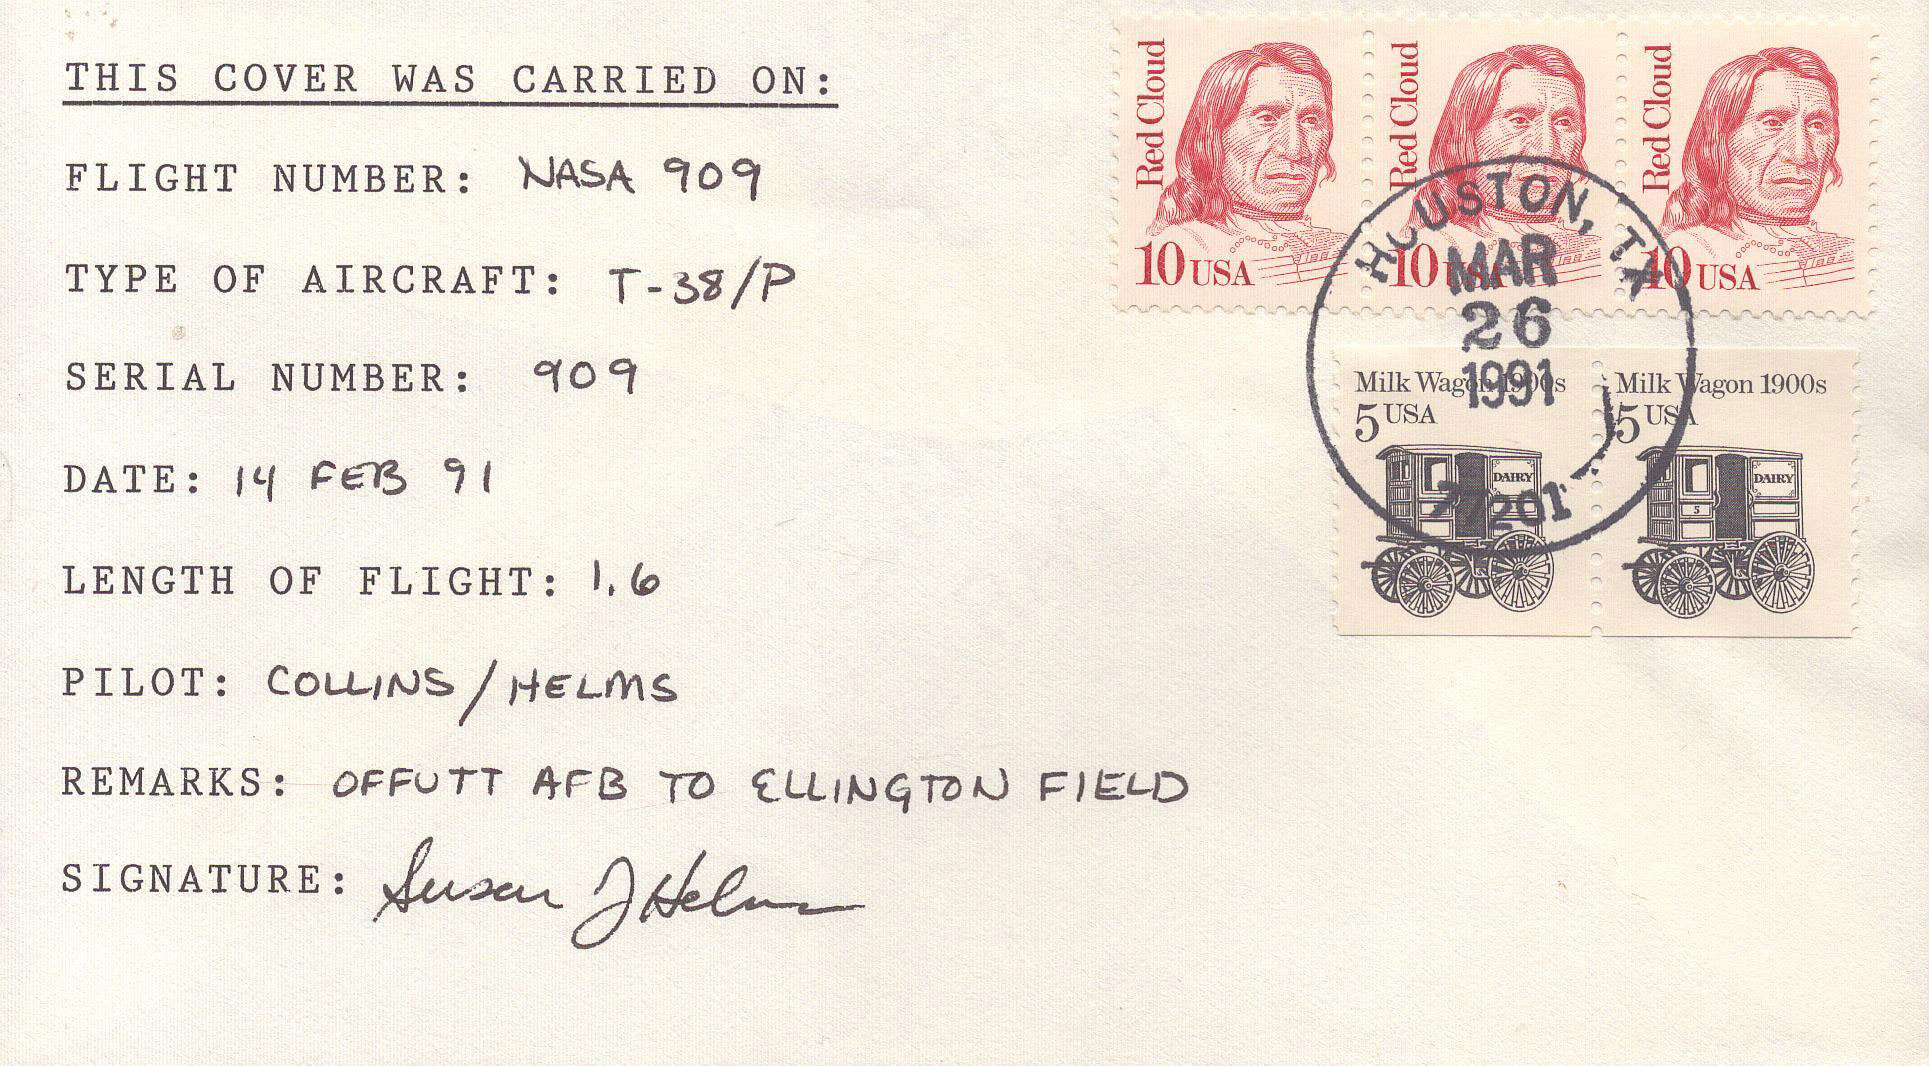 THIS COVER WAS CARRIED ON:
FLIGHT NUMBER: NASA 909
TYPE OF AIRCRAFT: T-38/P
SERIAL NUMBER: 909
DATE: 14 FEB 91
LENGTH OF FLIGHT: 1.6
PILOT: COLLINS/HELMS
REMARKS: OFFUTT AFB TO ELLINGTON FIELD
SIGNATURE: Susan J Helms
Red Cloud
10 USA
Red Cloud
10 USA
Red Cloud
10 USA
HOUSTON, TX
MAR
26
1991
77201
Milk Wagon 1900s
5 USA
DAIRY
Milk Wagon 1900s
5 USA
DAIRY
5